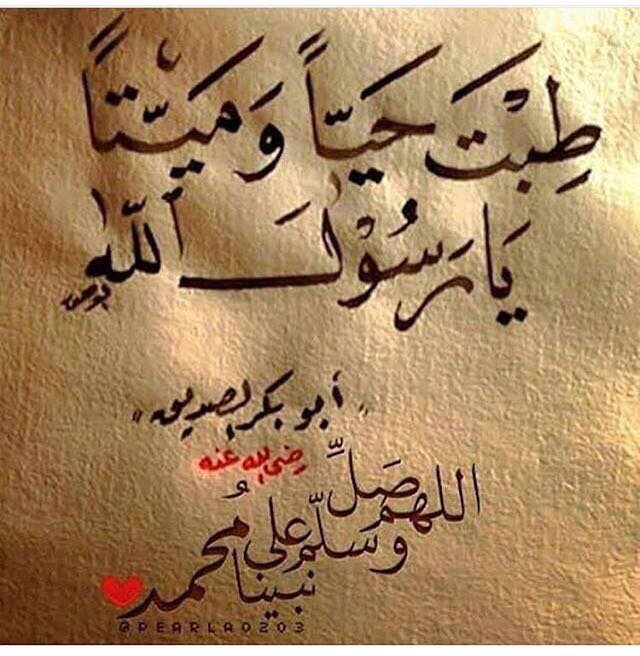 طِبْتَ حَيّاً وَمَيّتاً
يَا رَسُوْلَ اللّه
"أبو بكر الصديق"
رضي الله عنه
اللهم صَلِّ
وسلّم على
نبينا مُحمد
@PEARLA0203